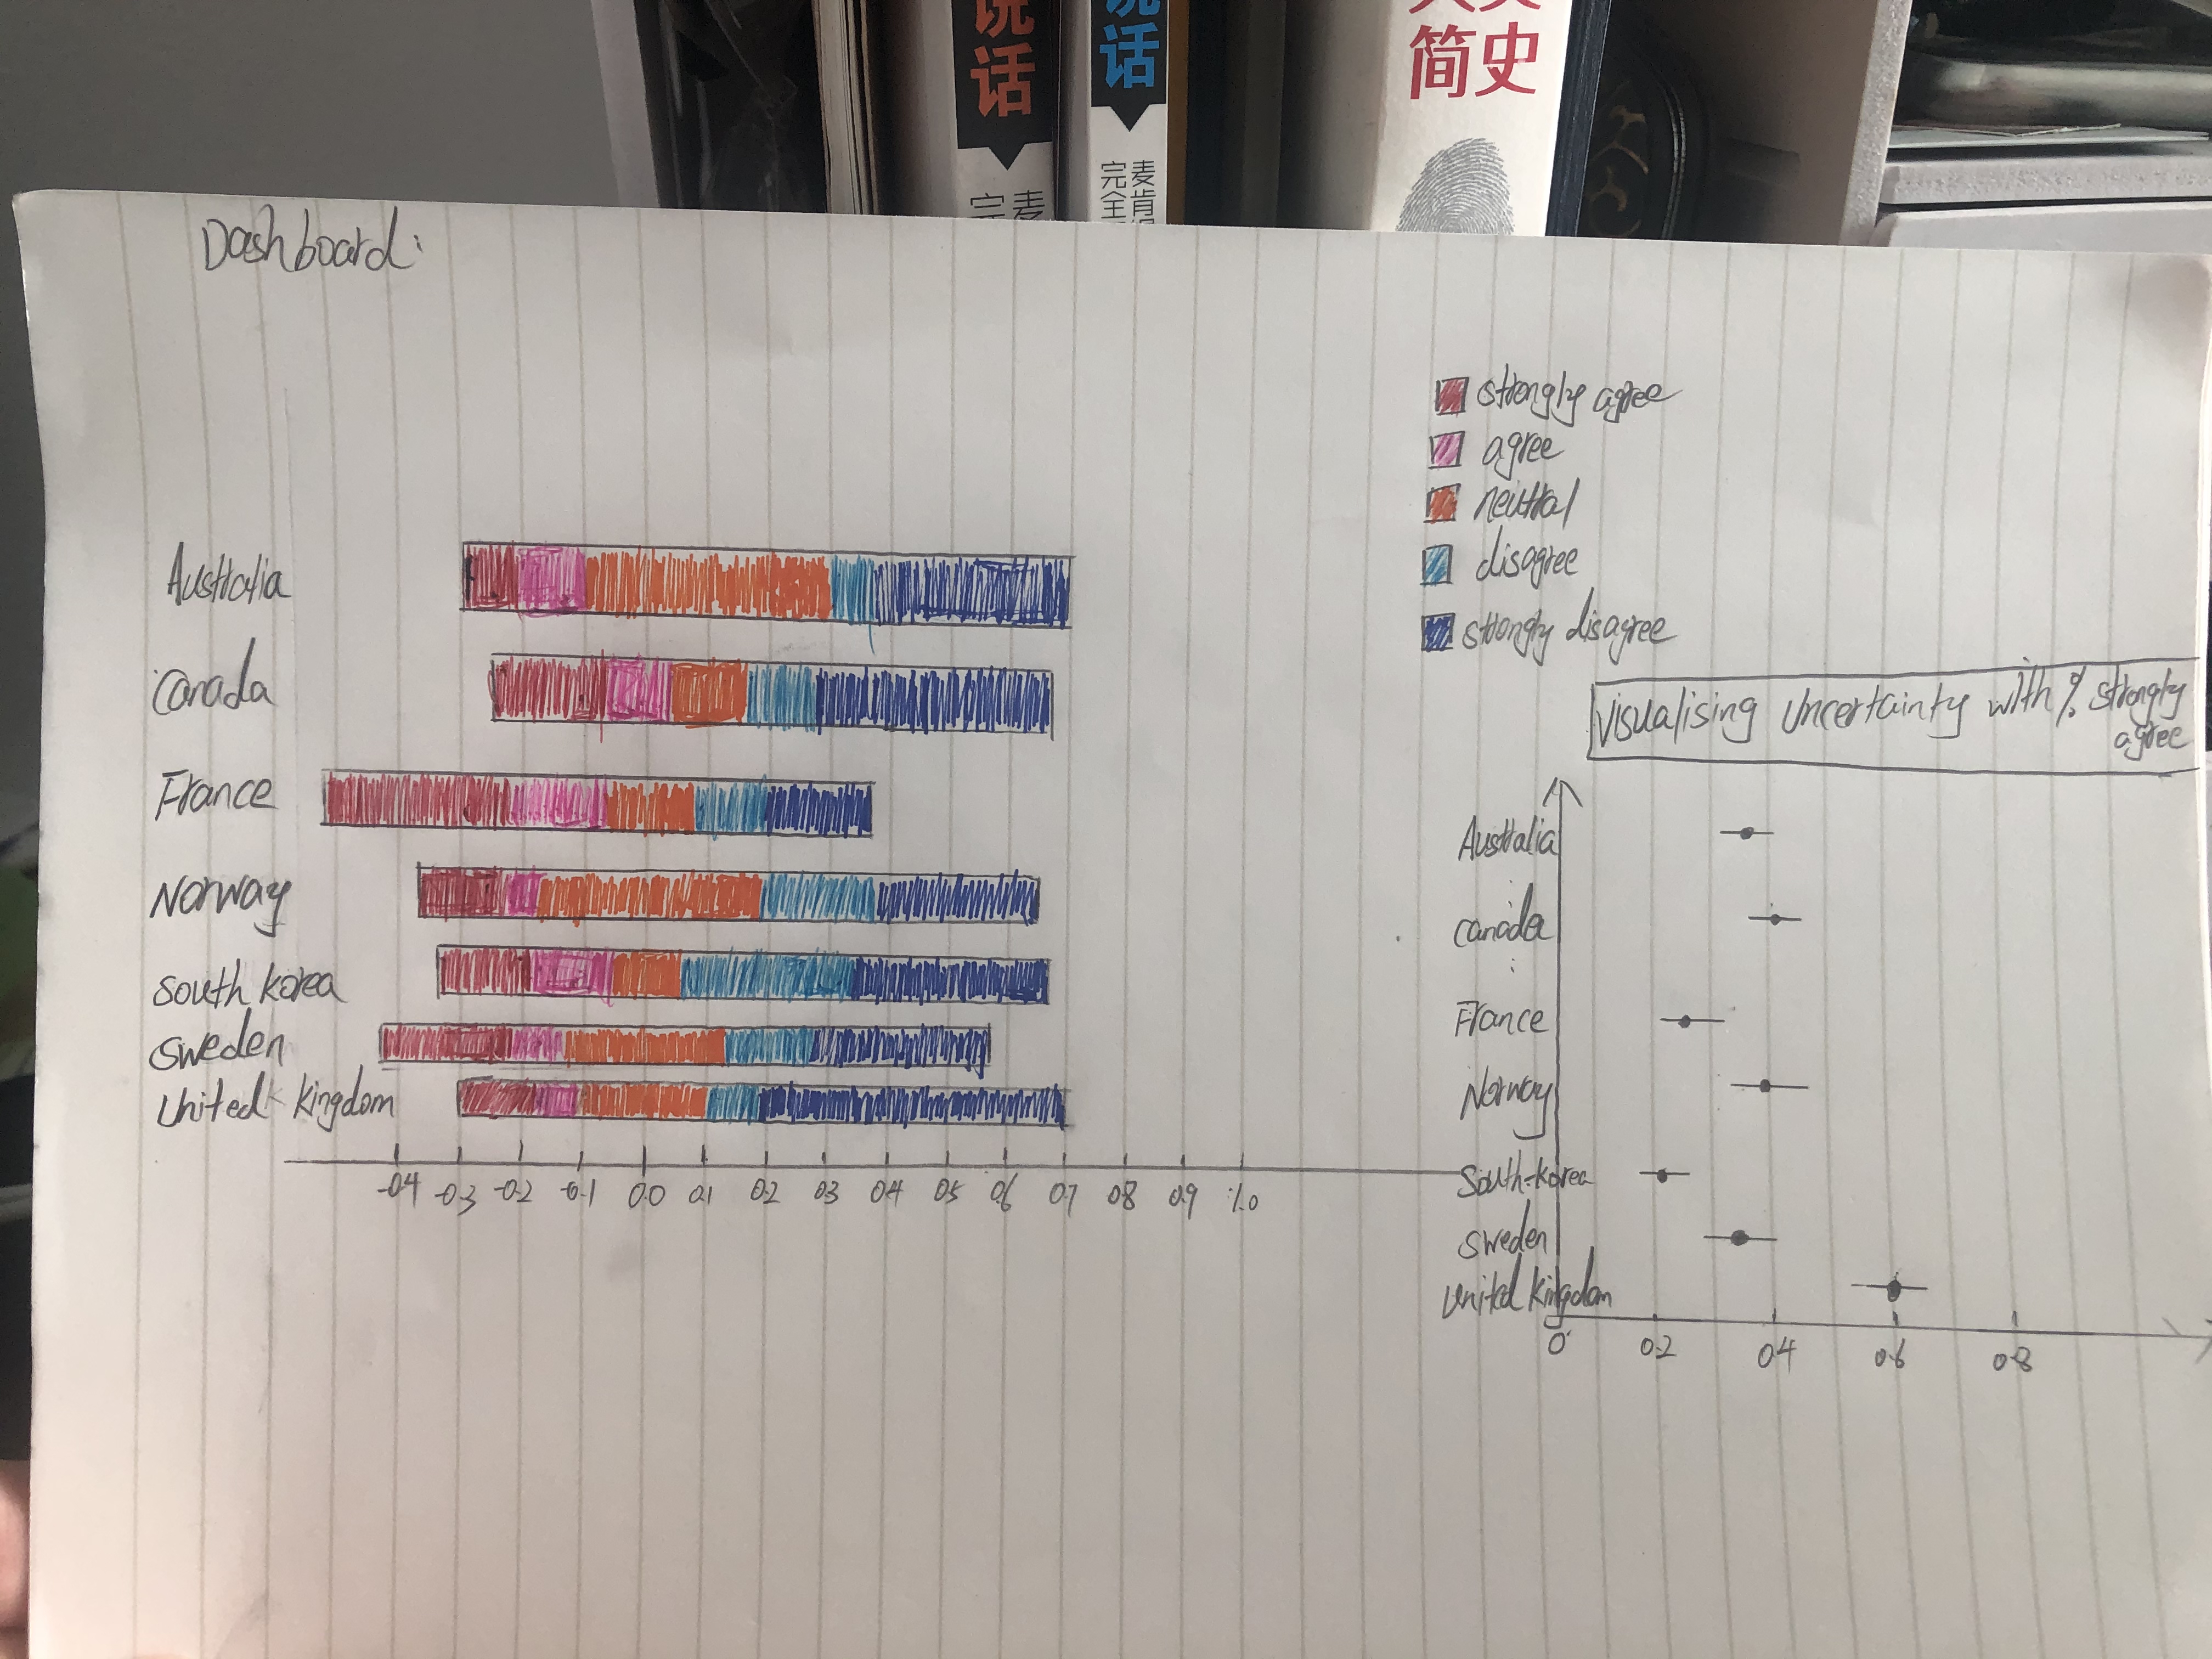 说话
说话
简史
完 麦
完全 麦肯
Dashboard:
strongly agree
agree
neutral
disagree
strongly disagree
Australia
Canada
France
Norway
South Korea
Sweden
United Kingdom
-0.4 -0.3 -0.2 -0.1 0.0 0.1 0.2 0.3 0.4 0.5 0.6 0.7 0.8 0.9 1.0
Visualising Uncertainty with % strongly
agree
Australia
Canada
France
Norway
South-Korea
Sweden
United Kingdom
0 0.2 0.4 0.6 0.8